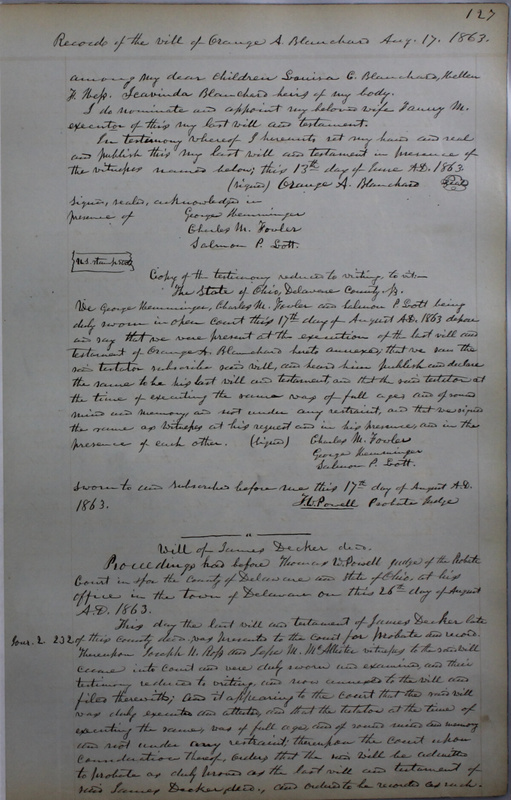 127
Records of the will of Orange A. Blanchard Aug. 17. 1863.
among my dear children Louisa C. Blanchard, Hellen
F. Hess. Leavinda Blanchard heirs of my body.
I do nominate and appoint my beloved wife Fanny M.
executor of this my last will and testament.
In testimony whereof I hereunto set my hand and seal
and publish this my last will and testament in presence of
the witnesses named below, this 13th day of June A.D. 1863
(signed) Orange A. Blanchard Seal
signed, sealed, acknowledged in
presence of George Hemminger
Charles M. Fowler
Salmon P. Lott.
U.S. stamp
Copy of the testimony reduced to writing, to wit
The State of Ohio, Delaware County, ss.
We George Hemminger, Charles M. Fowler and Salmon P. Lott being
duly sworn in open Court this 17th day of August A.D. 1863 depose
and say that we were present at the execution of the last will and
testament of Orange A. Blanchard hereto annexed, that we saw the
said testator subscribe said will, and heard him publish and declare
the same to be his last will and testament, and that the said testator at
the time of executing the same was of full age, and of sound
mind and memory and not under any restraint, and that we signed
the same as witnesses at his request and in his presence, and in the
presence of each other. (signed) Charles M. Fowler
George Hemminger
Salmon P. Lott.
Sworn to and subscribed before me this 17th day of August A.D.
1863. T.W. Powell Probate Judge
Will of James Decker decd.
Proceedings had before Thomas W. Powell Judge of the Probate
Court in & for the County of Delaware and State of Ohio, at his
office in the town of Delaware on this 26th day of August
A.D. 1863.
This day the last will and testament of James Decker late
Jour. 2. 232 of this County decd. was presented to the Court for Probate and record.
Thereupon Joseph N. Ross and M. witnesses to the said will
came into Court and were duly sworn and examined, and their
testimony reduced to writing, and now annexed to the will and
filed therewith; And it appearing to the Court that the said will
was duly executed and attested, and that the testator at the time of
executing the same, was of full age, and of sound mind and memory
and not under any restraint; thereupon the Court upon
consideration thereof, orders that the said will be admitted
to probate as duly proved as the last will and testament of
said James Decker, decd., and ordered to be recorded as such.